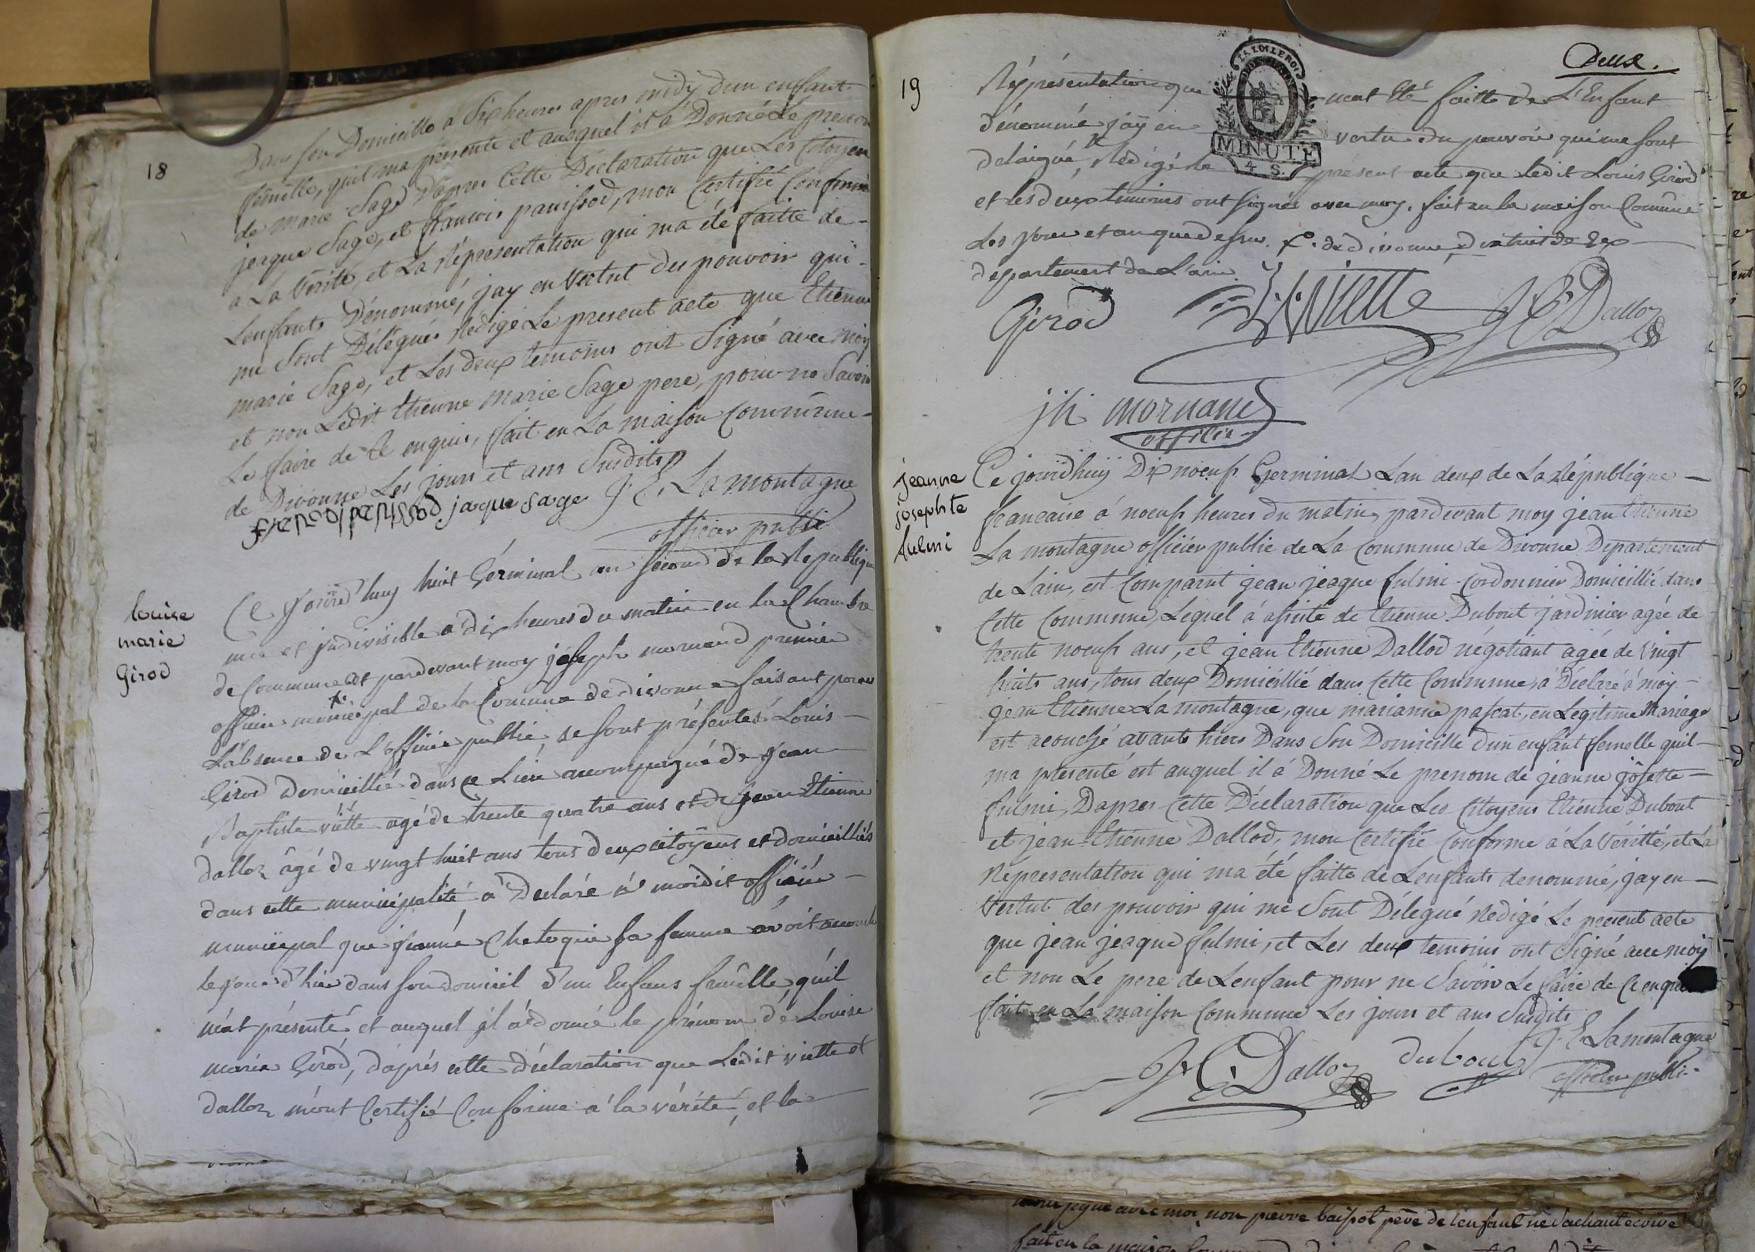 18
Dans son Domicille a Six heures apres midy d'un enfant
femelle, quil ma presenté et auquel il a Donné Le prenom
de marie Sage D'apres Cette Déclaration que Les Citoyens
jacque Sage, et francois panissod, mon Certifié Conforme
a La Verité, et La Representation qui ma été faitte de
Lenfants Dénommé, jay en Vertut des pouvoir qui
me Sont Délegués Redigé Le present acte que Etienne
marie Sage, et Les deux temoins ont Signé avec moy
et non Ledit Etienne marie Sage pere, pour ne Savoir
Le faire de Ce enquis, fait en La maison Commune
de Divonne Les jours et ans Susdits
jacque sage J. E. Lamontagne
officier public
louise
marie
Girod
Ce jourd'huy huit Germinal an second de la Republique
une et jndivisible a dix heures du matin en la Chambre
de Commune et pardevant moy joseph mornand premier
officier municipal de la Comune de divonne faisant pour
L'absence de L'officier public, se sont présentés Louis
Girod domicillié dans ce Lieu accompagné de jean
Baptiste viette agé de trente quatre ans et de jean Etienne
dalloz âgé de vingt huit ans tous deux citoyens et domicilliés
dans cette municipalité a Déclaré a moidit officier
municipal que sa femme avoit acouché
le jour d'hier dans son domicil d'un Enfans femelle qu'il
m'at présenté et auquel jl a donné le prénom de Louise
marie Girod, d'après cette déclaration que Ledit viette et
dalloz m'ont Certifié Conforme a la vérité, et la
19
Deux.
Répréséntation que m'ont Eté faitte de L'Enfant
dénommé j'ay en vertu du pouvoir qui me sont
delaigué, Rédigé le présent acte que ledit Louis Girod
et les deux timoins ont signés avec moy. fait en la maison Comune
Les jour et an que dessu. C. de divonne, district de Gex
departement de L'ain
LA LOI LE ROI
MINUTE
4 S.
Girod J. B. Viette J. E. Dalloz
jh mornand
officier
jeanne
josephte
fulmi
Ce jourdhuy Dix noeuf Germinal Lan deux de La République
francaise á noeuf heures du matin, pardevant moy jean Etienne
La montagne officier public de La Commune de Divonne Departement
de Lain, est Comparut jean jacque fulmi Cordonnier Domicillié dans
Cette Commune, Lequel á assisté de Etienne Dubout jardinier agée de
trente noeuf ans, et jean Etienne Dallod négotiant agée de vingt
huits ans, tous deux Domicillié dans Cette Commune, a Déclaré a moy
jean Etienne La montagne, que marianne pascat, en Legitime Mariage
est acouché avants hiers Dans Son Domicille d'un enfant femelle quil
ma presenté est auquel il á Donné Le prenom de jeanne josette
fulmi, D'apres Cette Déclaration que Les Citoyens Etienne Dubout
et jean Etienne Dallod, mon Certifié Conforme á La Veritté, et La
Répresentation qui ma été faitte de Lenfants denommé, jay en
Vertut des pouvoir qui me Sont Délegué Redigé Le present acte
que jean jacque fulmi, et Les deux temoins ont Signé avec moy
et non Le pere de Lenfant pour ne Savoir Le faire de Ce enquis
fait en La maison Commune Les jours et ans Susdits
J. E. Dalloz dubout J. E. Lamontagne
officier public
avec moi, non pierre baissot père de l'enfant ne sachant ecrire
fait en la maison